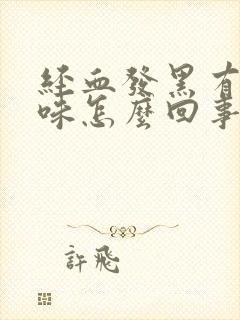 經血發黑有
味怎麼回事
許飛